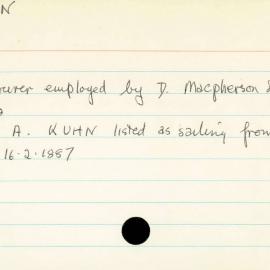 N
urer employed by D. Macpherson &
A. KUHN listed as sailing from
16.2.1887